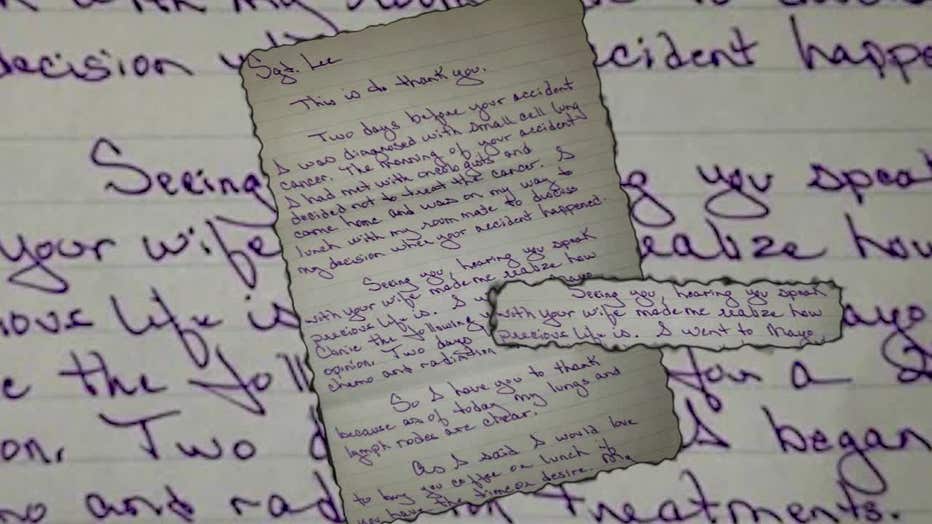 Sgt. Lee
This is do thank you.
Two days before your accident
I was diagnosed with small cell lung
cancer. The morning of your accident
I had met with oncologists and
decided not to treat the cancer. I
came home and was on my way to
lunch with my room mate to discuss
my decision when your accident happened.
Seeing you, hearing you speak
with your wife made me realize how
precious life is. I
Clinic the following
opinion. Two days
chemo and radiation
So I have you to thank
because as of today my lungs and
lymph nodes are clear.
As I said I would love
to buy you coffee or lunch if
you have the time or desire.
Seeing you, hearing you speak
with your wife made me realize how
precious life is. I went to Mayo
decision
happe
Seeing
you speak
your wife
how
life is
the
for a
Two
I began
and
treatments.